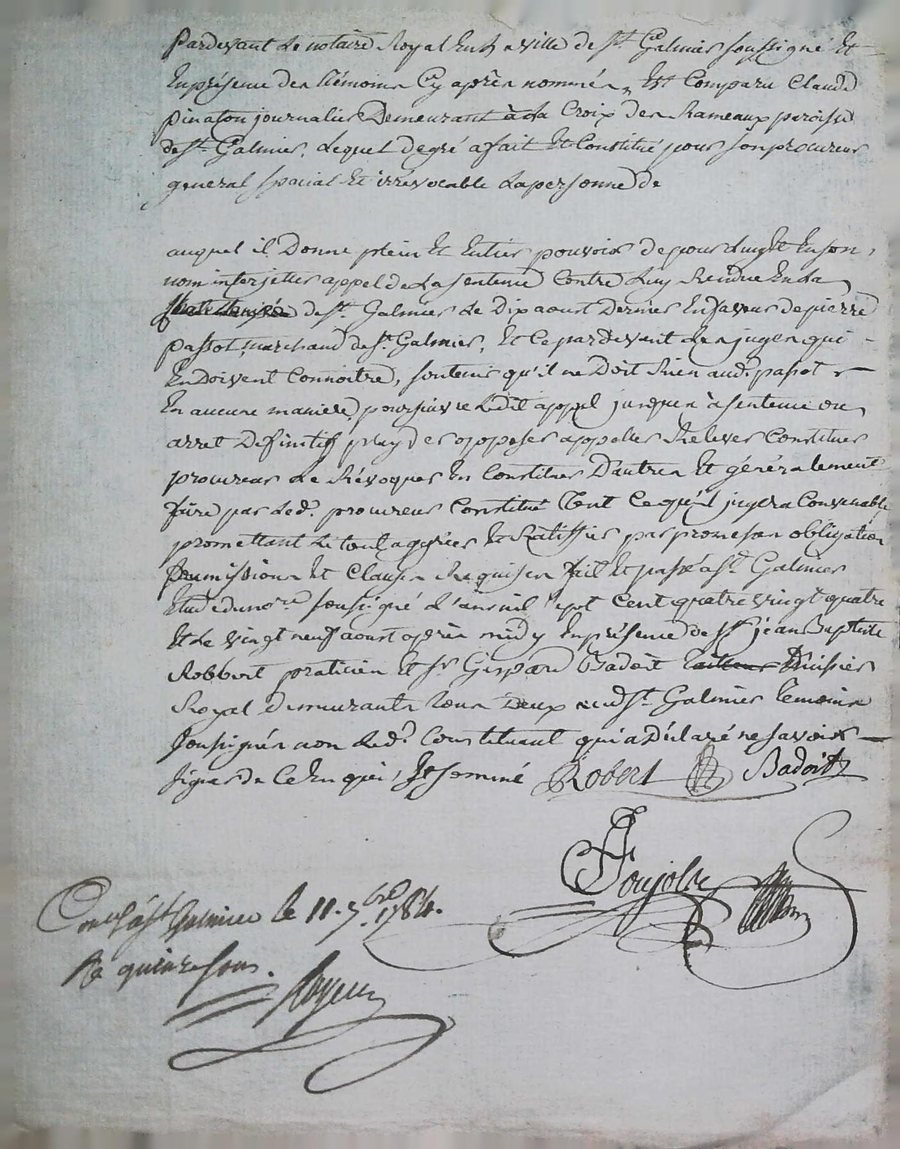 Pardevant Le notaire Royal En La ville de St. Galmier soussigné Et
En présence des témoins Cy après nommés, Est Comparu Claude
Pinaton journalier Demeurant à La Croix des Rameaux paroisse
de St. Galmier, Lequel de gré a fait Et Constitué pour son procureur
general spécial Et irrévocable La personne de
auquel il Donne plein Et Entier pouvoir de pour Luy Et En son
nom interjetter appel de La sentence Contre Luy Rendue En La
de St. Galmier Le Dix aoust Dernier En faveur de pierre
passot, marchand de St. Galmier, Et Ce pardevant Les juges qui
En Doivent Connoitre, soutenir qu'il ne Doit Rien aud. passot
En aucune maniere, poursuivre Ledit appel jusques à sentence ou
arret Definitif, playder opposer appeller Relever Constituer
procureur Le Révoquer En Constituer D'autres Et généralement
faire par Led. procureur Constitué Tout Ce qu'il jugera Convenable
promettant Le tout agréer Et Ratiffier par promesses obligation
soumissions Et Clauses Requises fait Et passé à St. Galmier
Etude du nore. soussigné L'an mil sept Cent quatre vingt quatre
Et Le vingt neuf aoust après midy En présence de Sr. jean Baptiste
Robbert praticien Et Sr. Gaspard Badoit huissier
Royal demeurants tous Deux aud. St. Galmier temoins
soussignés non Led. Constituant qui a Déclaré ne savoir
signer de Ce Enquis, Et sommé Robert Badoit
Ponjolas
Conllé à St. Galmier le 11. 7bre 1784.
Rs quinze sous.